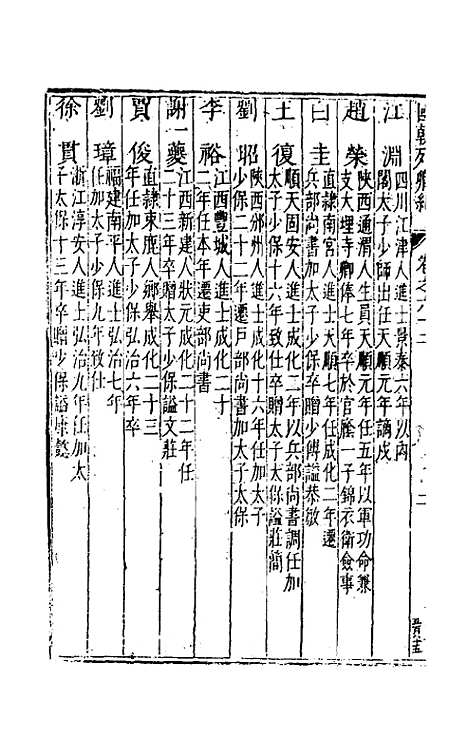 國朝列卿紀 卷之六十三
江淵 四川江津人進士景泰六年以內
閣太子少師出任天順元年謫戍
趙榮 陝西通渭人生員天順元年任五年以軍功命兼
支大理寺卿俸七年卒於官廕一子錦衣衛僉事
白圭 直隸南宮人進士天順七年任成化二年遷
兵部尚書加太子少保卒贈少傅謚恭敏
王復 順天固安人進士成化二年以兵部尚書調任加
太子少保十六年致仕卒贈太子太保謚莊簡
劉昭 陝西邠州人進士成化十六年任加太子
少保二十二年遷戶部尚書加太子太保
李裕 江西豐城人進士成化二十
二年任本年遷吏部尚書
謝一夔 江西新建人狀元成化二十二年任
二十三年卒贈太子少保謚文莊
賈俊 直隸束鹿人鄉舉成化二十三
年任加太子少保弘治六年卒
劉璋 福建南平人進士弘治七年
任加太子少保九年致仕
徐貫 浙江淳安人進士弘治九年任加太
子太保十三年卒贈少保謚康懿